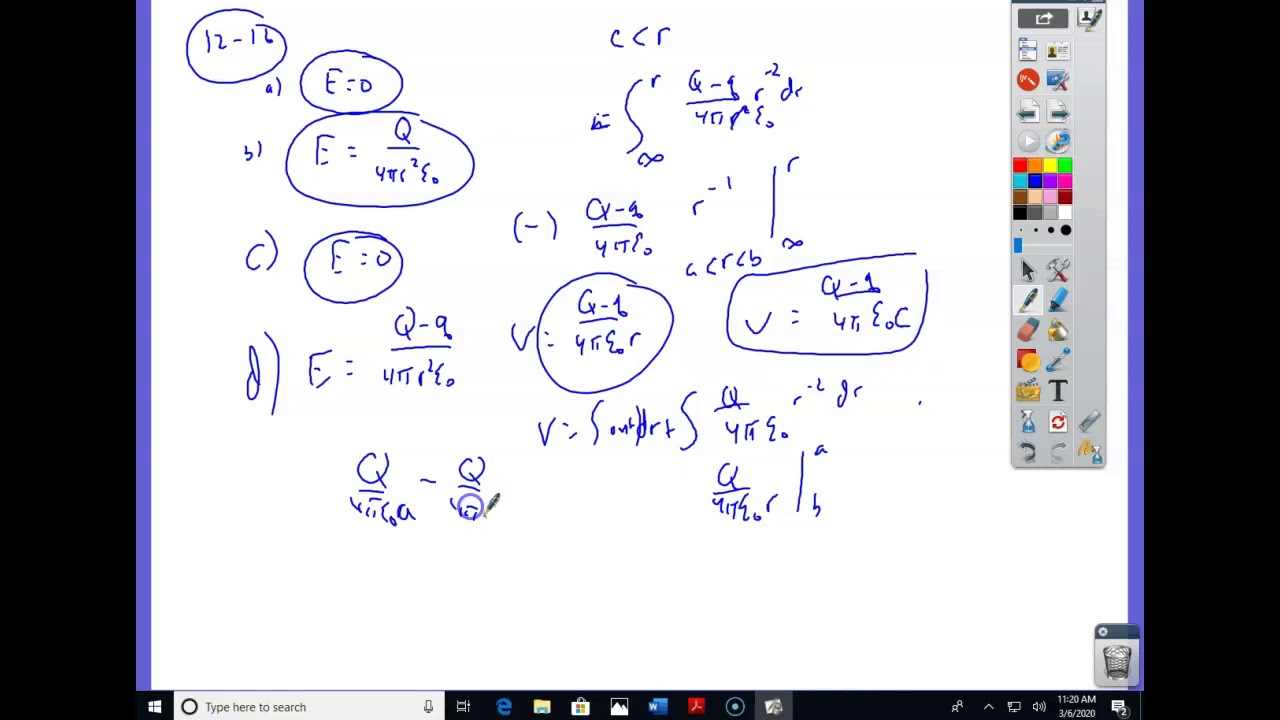 12-16
a) E=0
b) E = Q/4πr²ε₀
c) E=0
d) E = Q-q/4πr²ε₀
Q/4πε₀a - Q/4π
c < r
= ∫ r ∞ Q-q/4πr²ε₀ r⁻² dr
(-) Q-q/4πε₀ r⁻¹ | r ∞
a<r<b
V = Q-q/4πε₀r
V = Q-q/4πε₀C
V = ∫out dr + ∫ Q/4πε₀ r⁻² dr
Q/4πε₀r | a b
T
Type here to search
11:20 AM
3/6/2020
2